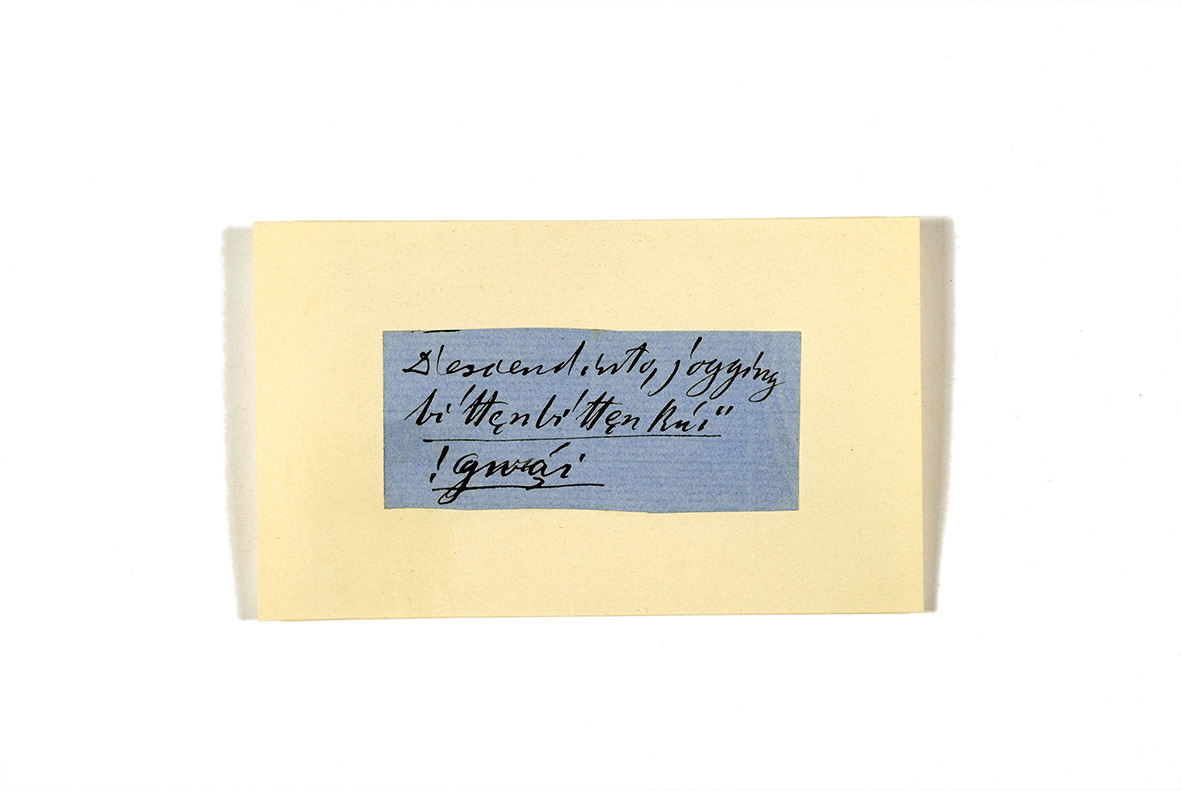 Descend into, jogging
bí ttęnbí ttęn kúi"
!gwąi